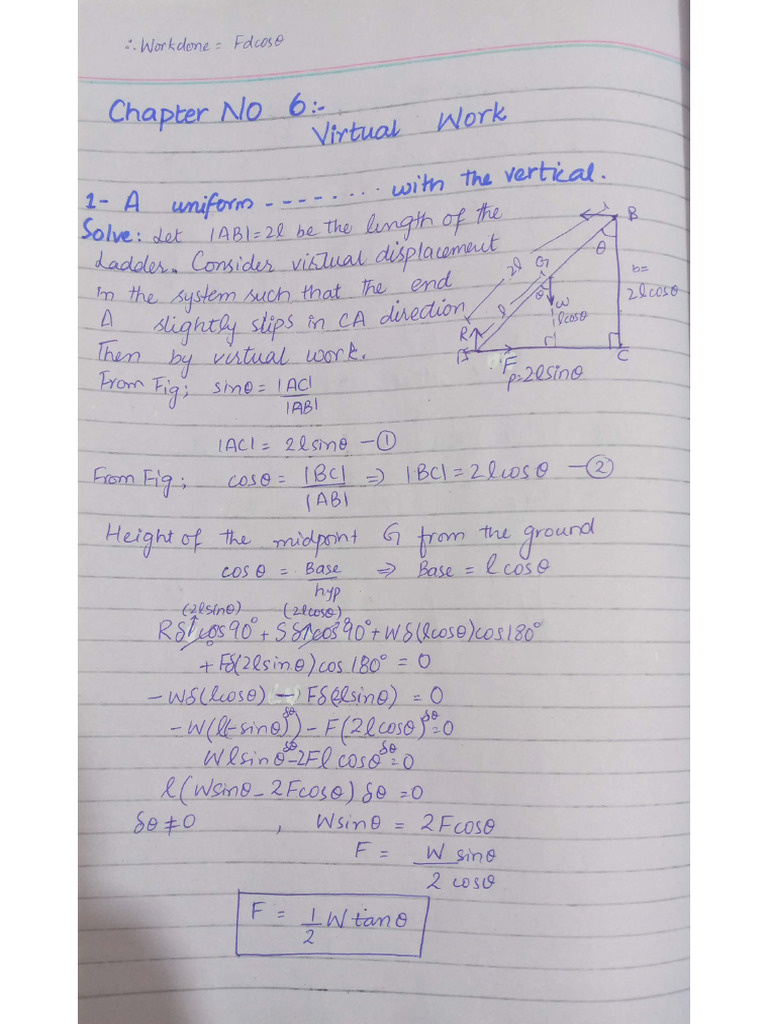 ∴ Workdone = Fdcosθ
Chapter No 6:-
Virtual Work
1- A uniform -----....... with the vertical.
Solve: Let |AB|=2l be the length of the
Ladder. Consider virtual displacement
in the system such that the end
A slightly slips in CA direction
Then by virtual work.
B
θ
2l
G
b=
2lcosθ
θ
W
l
lcosθ
R
A
F
C
P=2lsinθ
From Fig; sinθ = |AC|
|AB|
|AC| = 2lsinθ —①
From Fig; cosθ = |BC| ⇒ |BC| = 2lcosθ —②
|AB|
Height of the midpoint G from the ground
cosθ = Base ⇒ Base = lcosθ
hyp
(2lsinθ) (2lcosθ)
Rδ cos90° + Sδ cos90° + Wδ(lcosθ)cos180°
+ Fδ(2lsinθ)cos180° = 0
-Wδ(lcosθ) — Fδ(2lsinθ) = 0
-W(l(-sinθ)δθ) - F(2lcosθ)δθ = 0
Wlsinθδθ - 2Flcosθδθ = 0
l(Wsinθ - 2Fcosθ)δθ = 0
δθ ≠ 0 , Wsinθ = 2Fcosθ
F = W sinθ
2 cosθ
F = 1/2 W tanθ